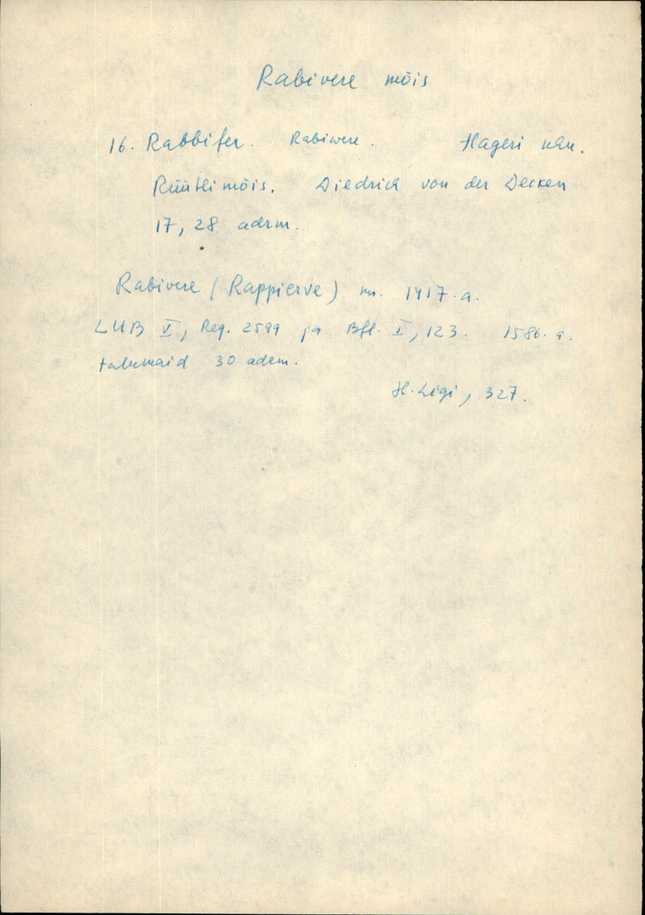 Rabivere mõis
16. Rabbifer. Rabiwere. Hageri khn.
Rüütlimõis. Diedrich von der Decken
17, 28 adrm.
Rabivere (Rappierve) m. 1417. a.
LUB V, Reg. 2599 ja Bfl. I, 123. 1586. a.
talumaid 30 adrm.
H. Ligi, 327.